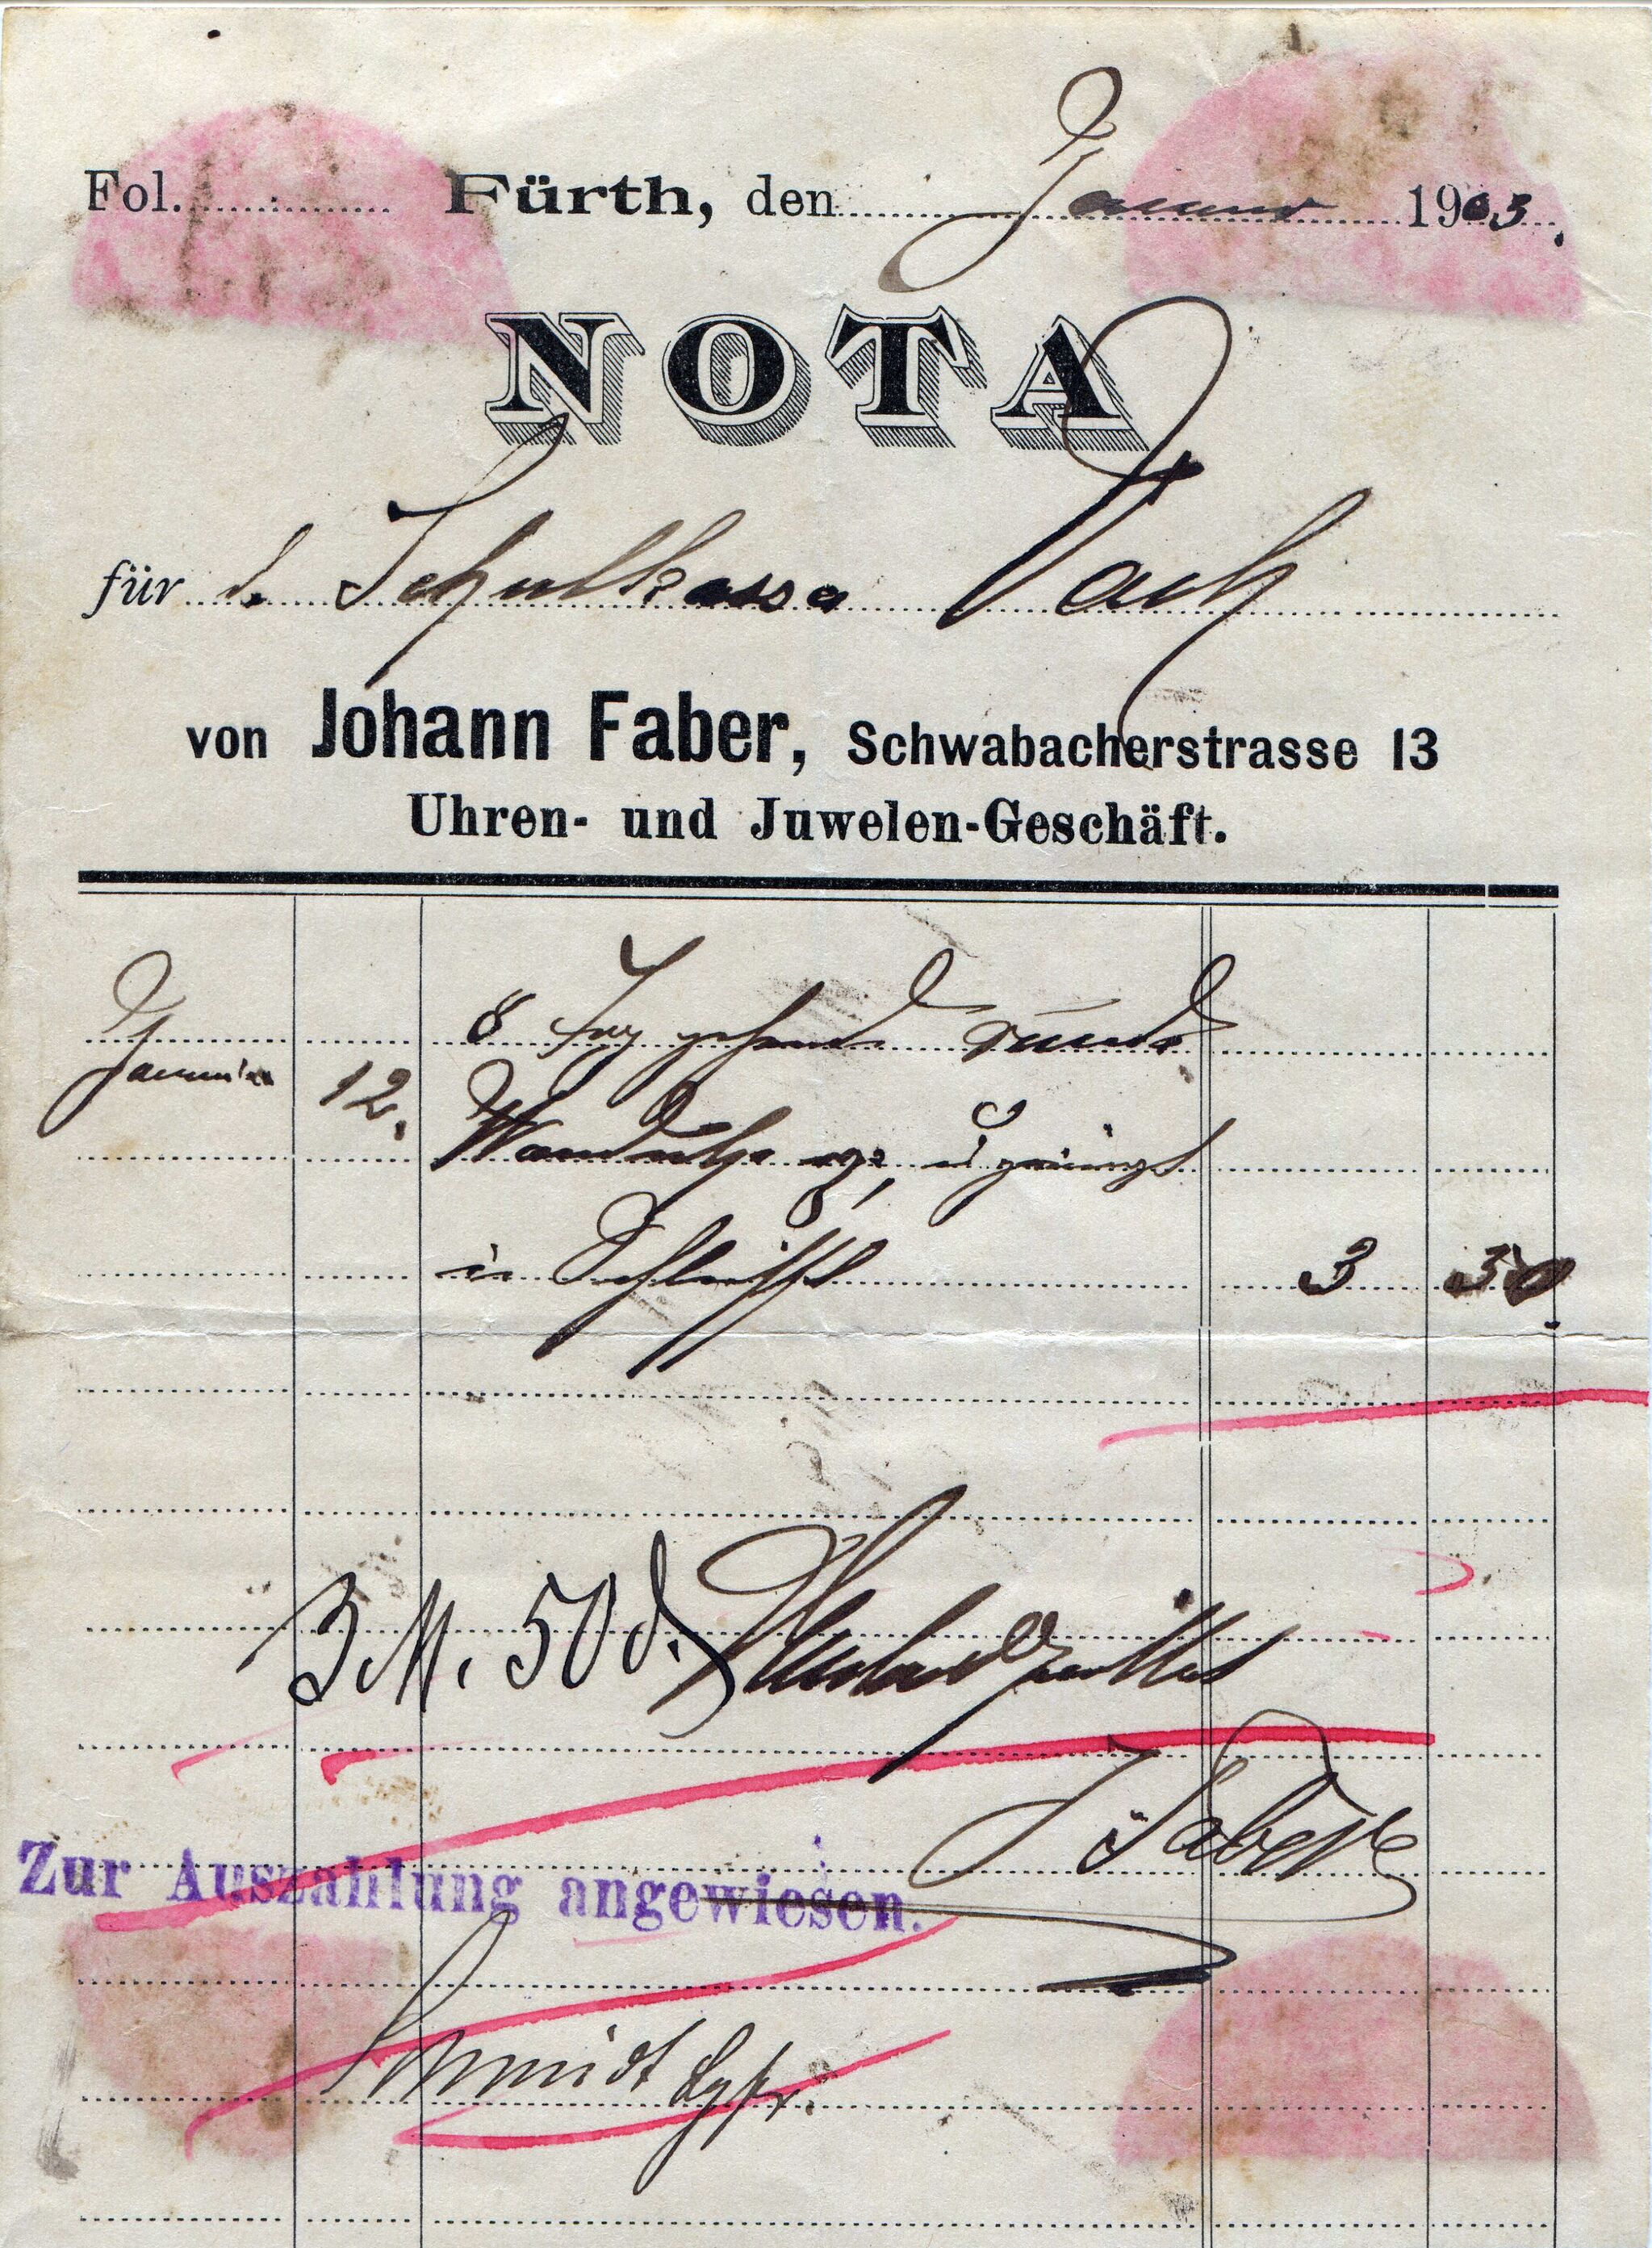 Fol. Fürth, den Januar 1903.
NOTA
für d. Schulkassa Vach
von Johann Faber, Schwabacherstrasse 13
Uhren- und Juwelen-Geschäft.
8 Tag gehend runde
Januar 12. Wanduhr u gereinigt
3 50
3 M. 50 d. dankend quittiert
J Faber
Zur Auszahlung angewiesen.
Schmidt